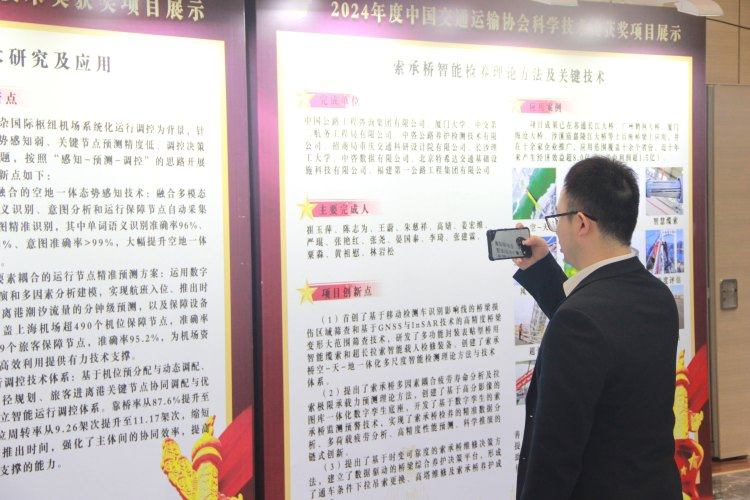 获奖项目展示
术研究及应用
杂国际枢纽机场系统化运行调控为背景，针
势感知弱、关键节点预测精度低、调控决策
题，按照“感知-预测-调控”的思路开展
新点如下：
融合的空地一体态势感知技术：融合多模态
义识别、意图分析和运行保障节点自动采集
图精准识别，其中单词语义识别准确率96%、
%、意图准确率>99%，大幅提升空地一体
要素耦合的运行节点精准预测方案：运用数字
演和多因素分析建模，实现航班入位、推出时
离港潮汐流量的分钟级预测，以及保障设备
盖上海机场超490个机位保障节点，准确率
9个旅客保障节点，准确率95.2%，为机场资
高效利用提供有力技术支撑。
行调控技术体系：基于机位预分配与动态调配、
径规划、旅客进离港关键节点协同调配与优
立智能运行调控体系。靠桥率从87.6%提升至
位周转率从9.26架次提升至11.17架次，缩短
推出时间，强化了主体间的协同效率，提高
支撑的能力。
2024年度中国交通运输协会科学技术
获奖项目展示
索承桥智能检养理论方法及关键技术
完成单位
中国公路工程咨询集团有限公司、厦门大学、中交第
一航务工程局有限公司、中咨公路养护检测技术有限
公司、招商局重庆交通科研设计院有限公司、长沙理
工大学、中咨数据有限公司、北京特希达交通基础设
施科技有限公司、福建第一公路工程集团有限公司
主要完成人
崔玉萍、陈志为、王蔚、朱慈祥、高婧、姜宏维、
严琨、张艳红、张尧、晏国泰、李琦、张建霖、
粟淼、黄祖慰、林岩松
项目创新点
（1）首创了基于移动检测车识别影响线的桥梁损
伤区域筛查和基于GNSS与InSAR技术的高精度桥梁
变形大范围筛查技术，研发了多功能封装表贴型桥用
智能缆索和超长拉索智能载人检修装备，创建了索承
桥空-天-地一体化多尺度智能检测理论方法与技术
体系。
（2）提出了索承桥多因素耦合疲劳寿命分析及拉
索极限承载力预测理论方法，创建了基于高分影像的
图库一体化数字孪生底座，开发了基于数字孪生的索
承桥监测预警技术，实现了索承桥检养的精准数据分
析、多荷载疲劳分析、高精度性能预测、科学推演的
链式创新。
（3）提出了基于时变可靠度的索承桥维修决策方
法，建立了数据驱动的桥梁综合养护决策平台，形成
了通车条件下拉吊索更换、高塔维修及索承桥养护成
应用案例
项目成果已在苏通长江大桥、广州鹤洞大桥、厦门
海沧大桥、沙溪庙嘉陵江大桥等十百座桥梁上应用，并
在十余家企业推广，应用范围覆盖十余个省份，近十年
智慧缆索